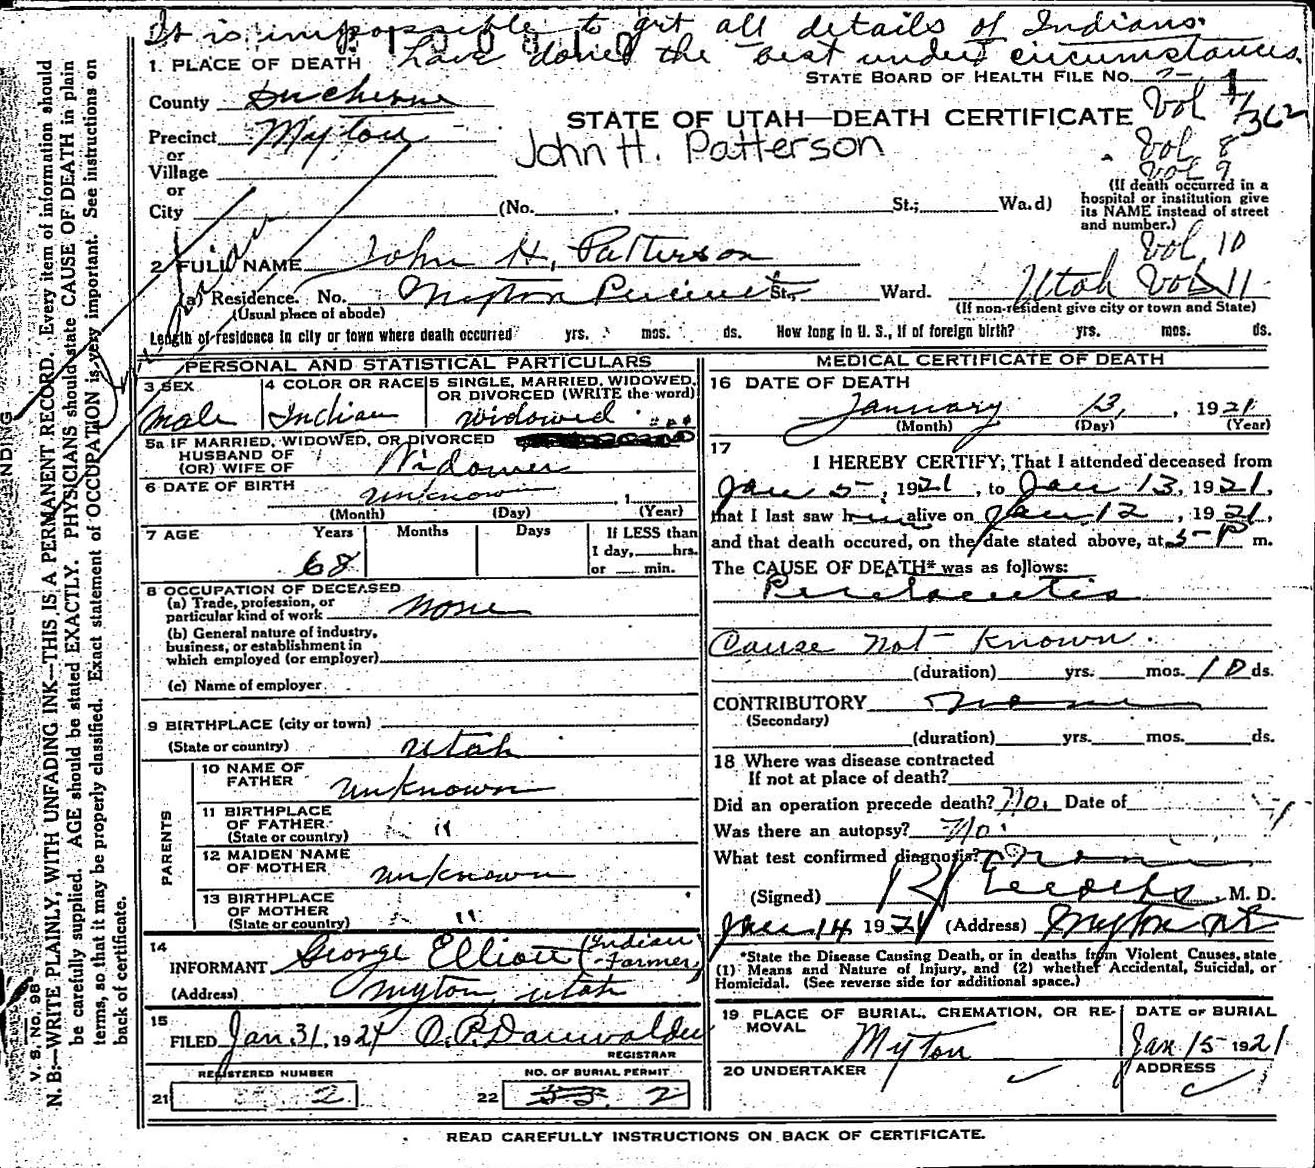 It is impossible to get all details of Indians.
have done the best under circumstances.
1. PLACE OF DEATH
STATE BOARD OF HEALTH FILE No. 2- 1
County Duchesne
Vol 7/362
STATE OF UTAH—DEATH CERTIFICATE
Precinct Myton
John H. Patterson
Vol 8
or
Vol 9
Village
or
(If death occurred in a hospital or institution give its NAME instead of street and number.)
City (No. , St.; Ward)
Vol 10
2 FULL NAME John H. Patterson
Utah Vol 11
(a) Residence. No. Myton Precinct St., Ward.
(Usual place of abode)
(If non-resident give city or town and State)
Length of residence in city or town where death occurred yrs. mos. ds. How long in U. S., if of foreign birth? yrs. mos. ds.
PERSONAL AND STATISTICAL PARTICULARS
3 SEX
male
4 COLOR OR RACE
Indian
5 SINGLE, MARRIED, WIDOWED,
OR DIVORCED (WRITE the word)
widowed
5a IF MARRIED, WIDOWED, OR DIVORCED
HUSBAND OF
(OR) WIFE OF Widower
6 DATE OF BIRTH unknown , 1
(Month) (Day) (Year)
7 AGE Years Months Days
68
If LESS than
1 day, hrs.
or min.
8 OCCUPATION OF DECEASED
(a) Trade, profession, or
particular kind of work none
(b) General nature of industry,
business, or establishment in
which employed (or employer)
(c) Name of employer
9 BIRTHPLACE (city or town)
(State or country) Utah
PARENTS
10 NAME OF
FATHER unknown
11 BIRTHPLACE
OF FATHER "
(State or country)
12 MAIDEN NAME
OF MOTHER unknown
13 BIRTHPLACE
OF MOTHER "
(State or country)
14
INFORMANT George Elliott (Indian Farmer)
(Address) Myton, Utah
15
FILED Jan. 31, 1921
REGISTRAR
REGISTERED NUMBER
21 2
NO. OF BURIAL PERMIT
22 2
MEDICAL CERTIFICATE OF DEATH
16 DATE OF DEATH
January 13, , 1921
(Month) (Day) (Year)
17
I HEREBY CERTIFY; That I attended deceased from
Jan 5-, 1921, to Jan 13, 1921,
that I last saw him alive on Jan 12, 1921,
and that death occured, on the date stated above, at 5-P m.
The CAUSE OF DEATH* was as follows:
Cause not known.
(duration) yrs. mos. 10 ds.
CONTRIBUTORY none
(Secondary)
(duration) yrs. mos. ds.
18 Where was disease contracted
If not at place of death?
Did an operation precede death? No. Date of
Was there an autopsy? No.
What test confirmed diagnosis?
(Signed) , M. D.
Jan 14 1921 (Address) Myton Ut
*State the Disease Causing Death, or in deaths from Violent Causes, state
(1) Means and Nature of Injury, and (2) whether Accidental, Suicidal, or
Homicidal. (See reverse side for additional space.)
19 PLACE OF BURIAL, CREMATION, OR RE-
MOVAL
Myton
DATE OF BURIAL
Jan 15 1921
20 UNDERTAKER
ADDRESS
READ CAREFULLY INSTRUCTIONS ON BACK OF CERTIFICATE.
V. S. No. 98
N. B:—WRITE PLAINLY, WITH UNFADING INK—THIS IS A PERMANENT RECORD. Every item of information should
be carefully supplied. AGE should be stated EXACTLY. PHYSICIANS should state CAUSE OF DEATH in plain
terms, so that it may be properly classified. Exact statement of OCCUPATION is very important. See instructions on
back of certificate.